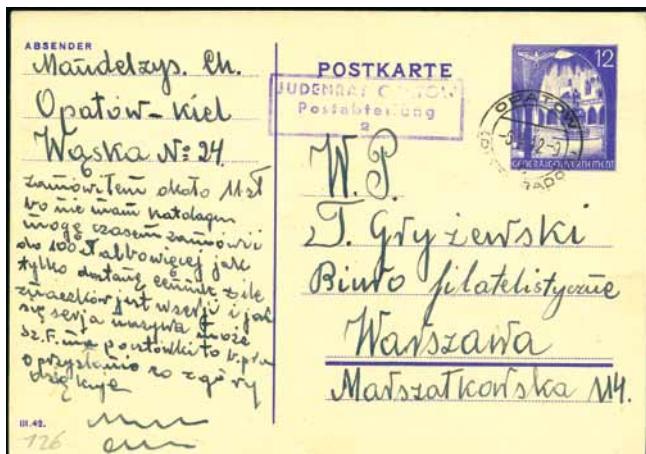 ABSENDER
Mandelzys. Ch.
Opatów-Kiel
Wąska № 24.
zamówiłem około 11 zł
bo nie mam katalogu
mogę czasem zamówić
do 100 zł albo więcej jak
tylko dostanę cennik z ile
znaczków jest w serji i jak
się serja nazywa może
Sz. F. ma pocztówki to b. pro
o przysłanie co z góry
dziękuję
III.42.
126
POSTKARTE
JUDENRAT OPATOW
Postabteilung
2
12
OPATOW
GENERALGOUVERNEMENT
W.P.
T. Gryżewski
Biuro filatelistyczne
Warszawa
Marszałkowska 114.